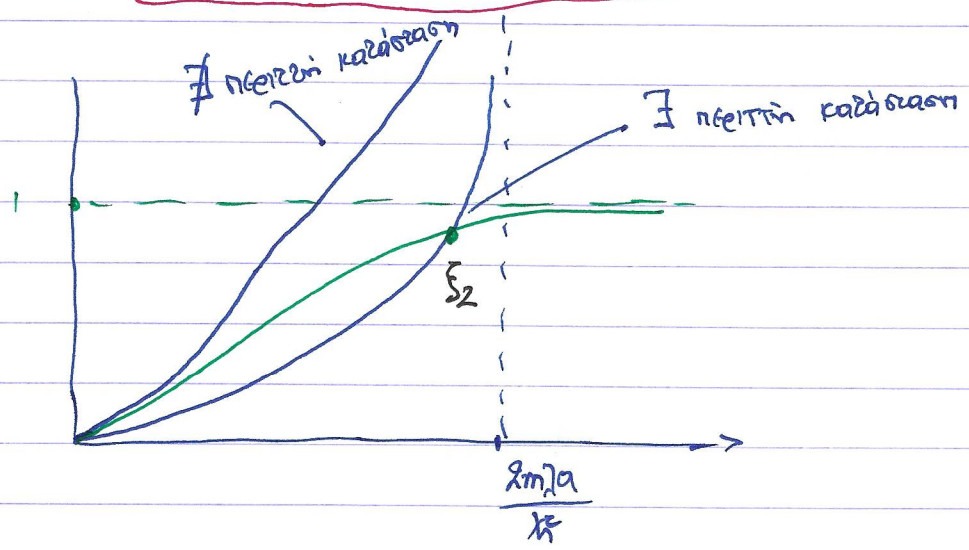 ∄ περιττή κατάσταση
∃ περιττή κατάσταση
1
ξ₂
2mλa
ħ²